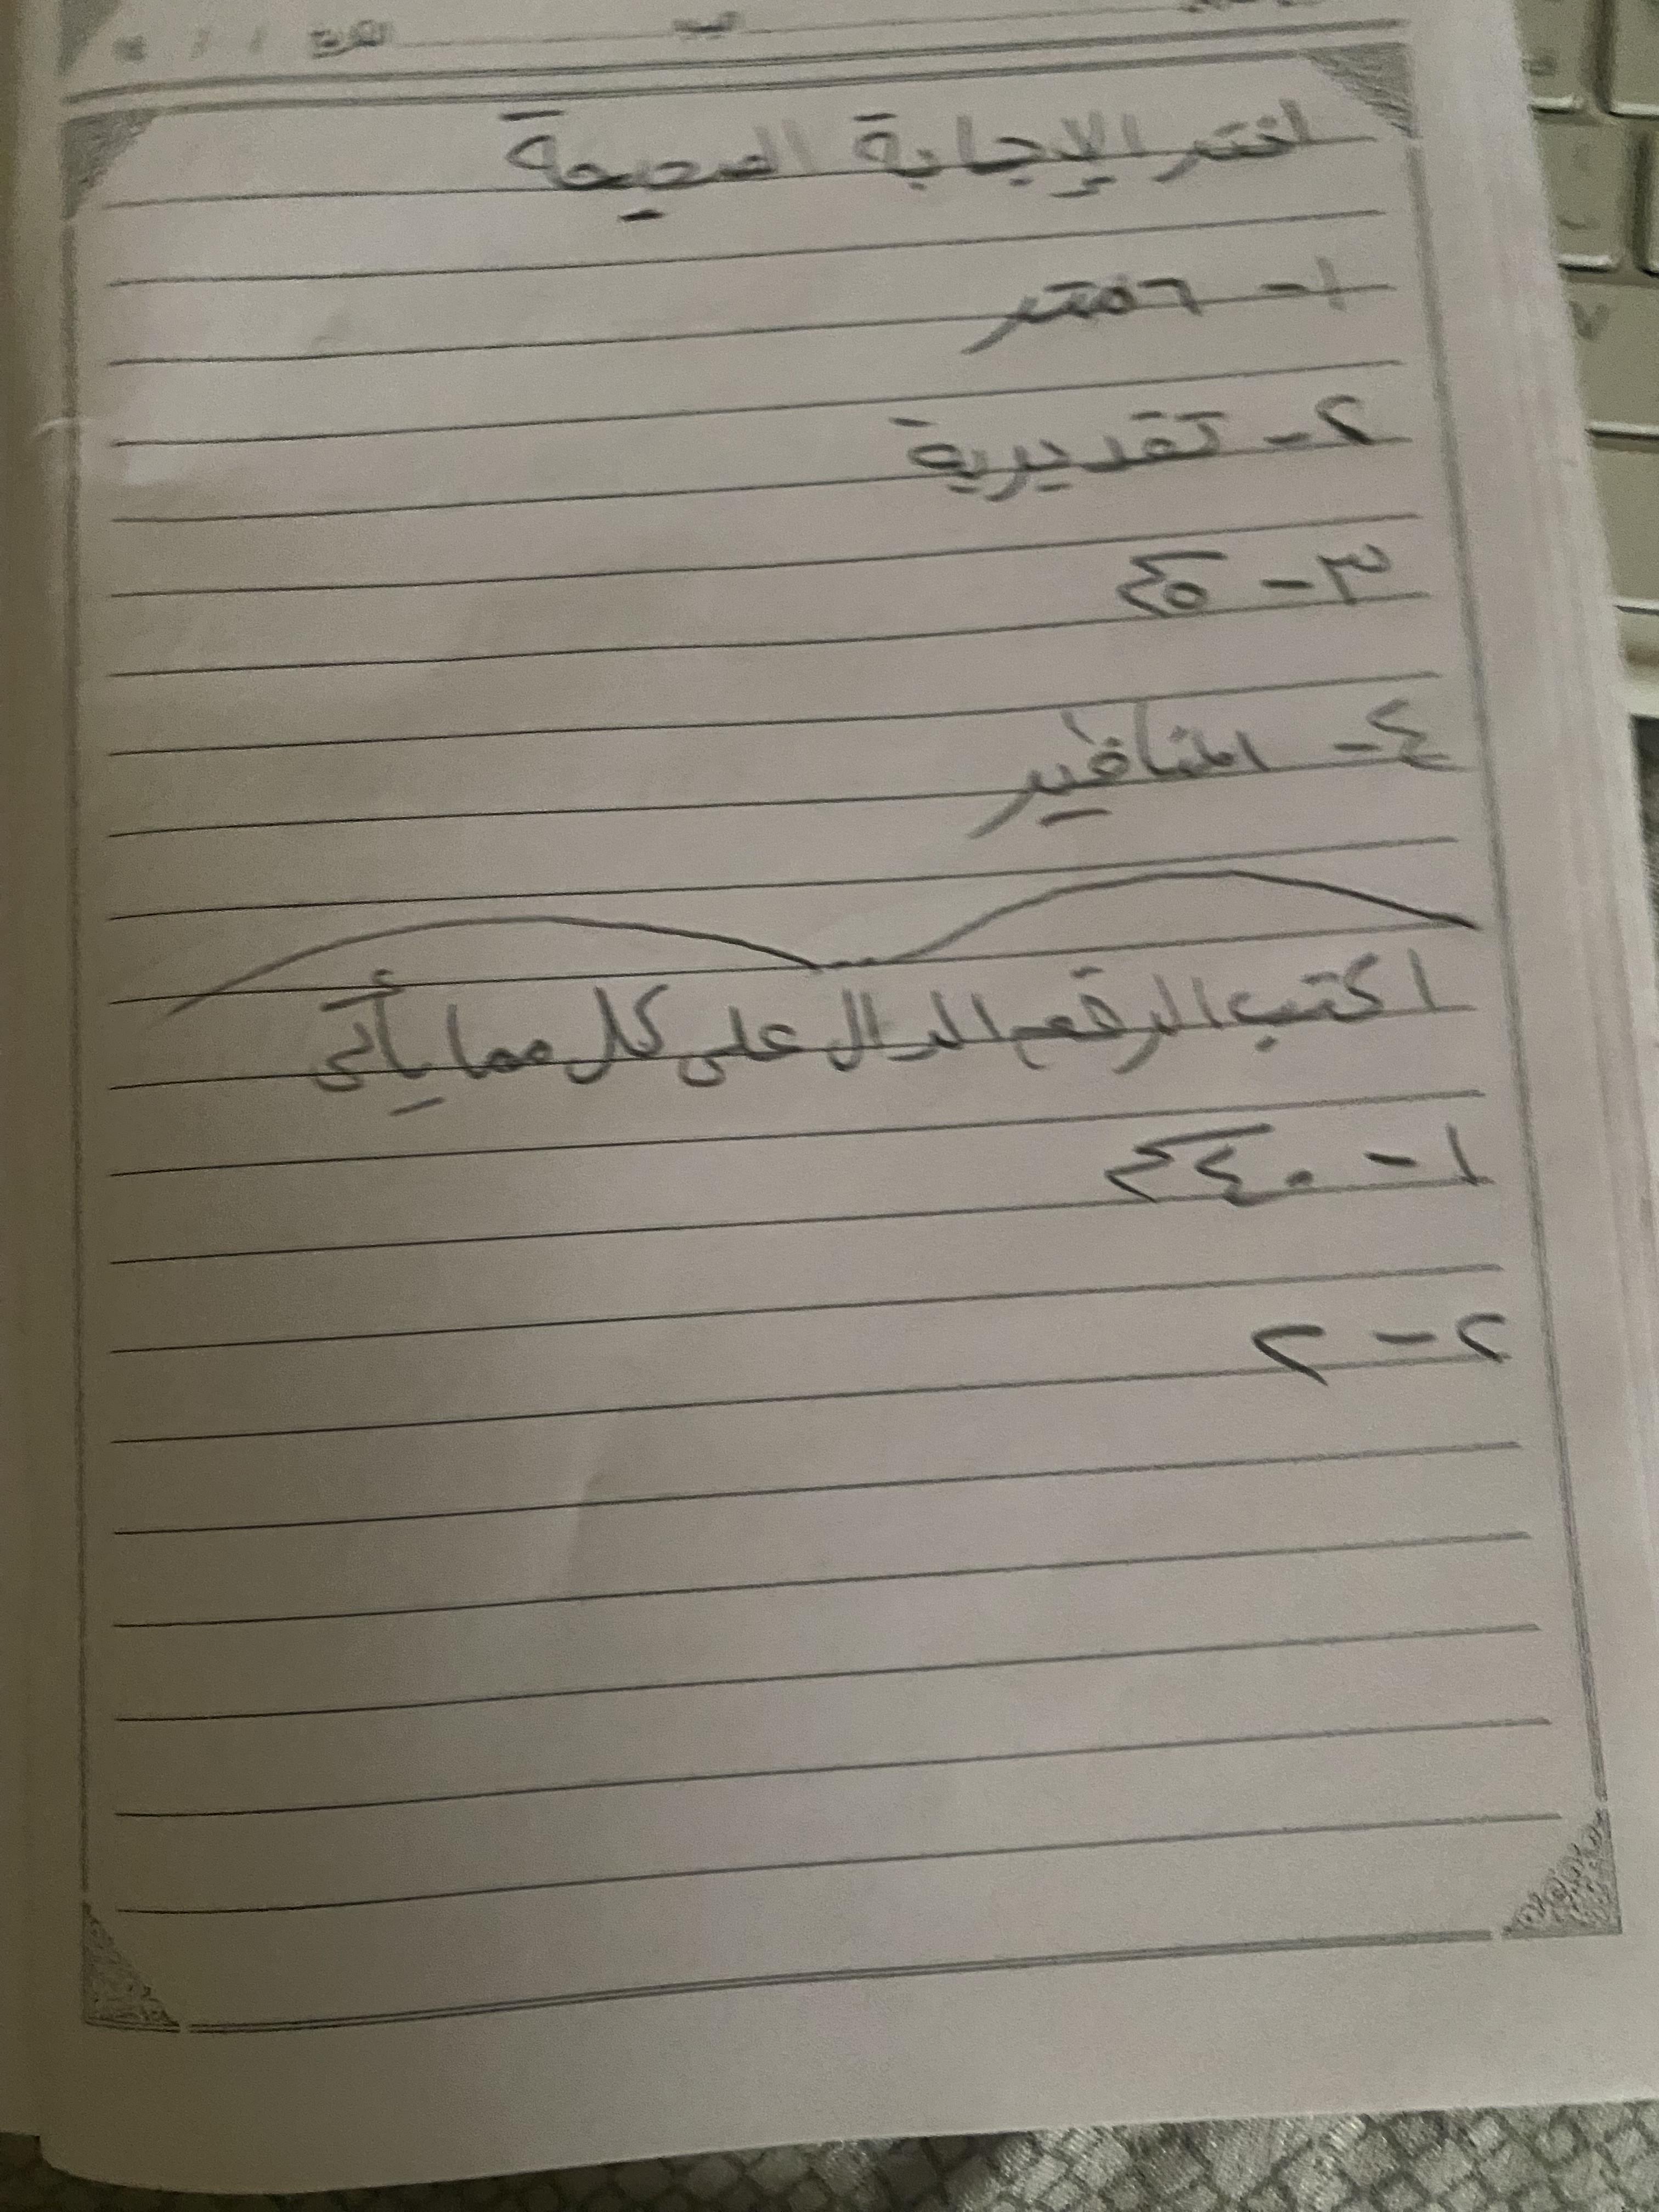 التاريخ / / ١٤
اختر الإجابة الصحيحة
١- ٦٥متر
٢- تقديرية
٣- ٤٥
٤- المناظير
اكتب الرقم الدال على كل مما يأتي
١- ٢٤٠
٢- ٢